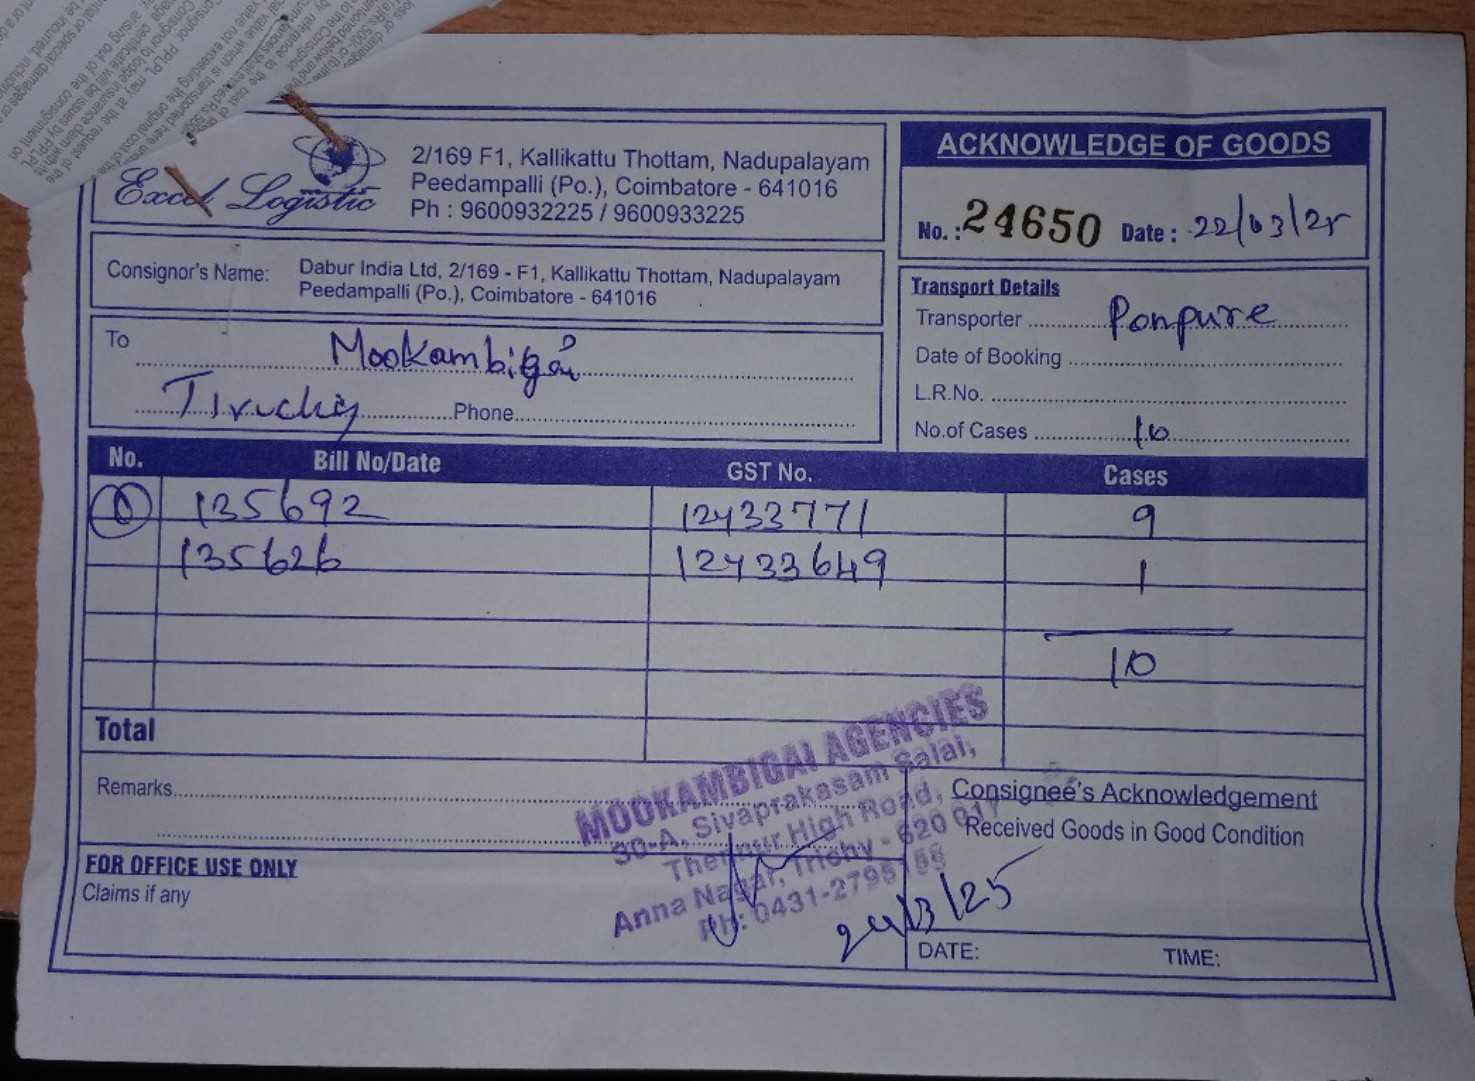 Excel Logistic
2/169 F1, Kallikattu Thottam, Nadupalayam
Peedampalli (Po.), Coimbatore - 641016
Ph : 9600932225 / 9600933225
ACKNOWLEDGE OF GOODS
No. : 24650 Date : 22/03/25
Consignor's Name: Dabur India Ltd, 2/169 - F1, Kallikattu Thottam, Nadupalayam
Peedampalli (Po.), Coimbatore - 641016
To Mookambigai
Tiruchy Phone
Transport Details
Transporter Ponpure
Date of Booking
L.R.No.
No.of Cases 10
No. Bill No/Date GST No. Cases
135692 12433771 9
135626 12433649 1
10
Total
Remarks
MOOKAMBIGAI AGENCIES
30-A, Sivaprakasam Salai,
Thennur High Road,
Anna Nagar, Trichy - 620 017
Ph: 0431-2795
Consignee's Acknowledgement
Received Goods in Good Condition
24/3/25
DATE: TIME:
FOR OFFICE USE ONLY
Claims if any